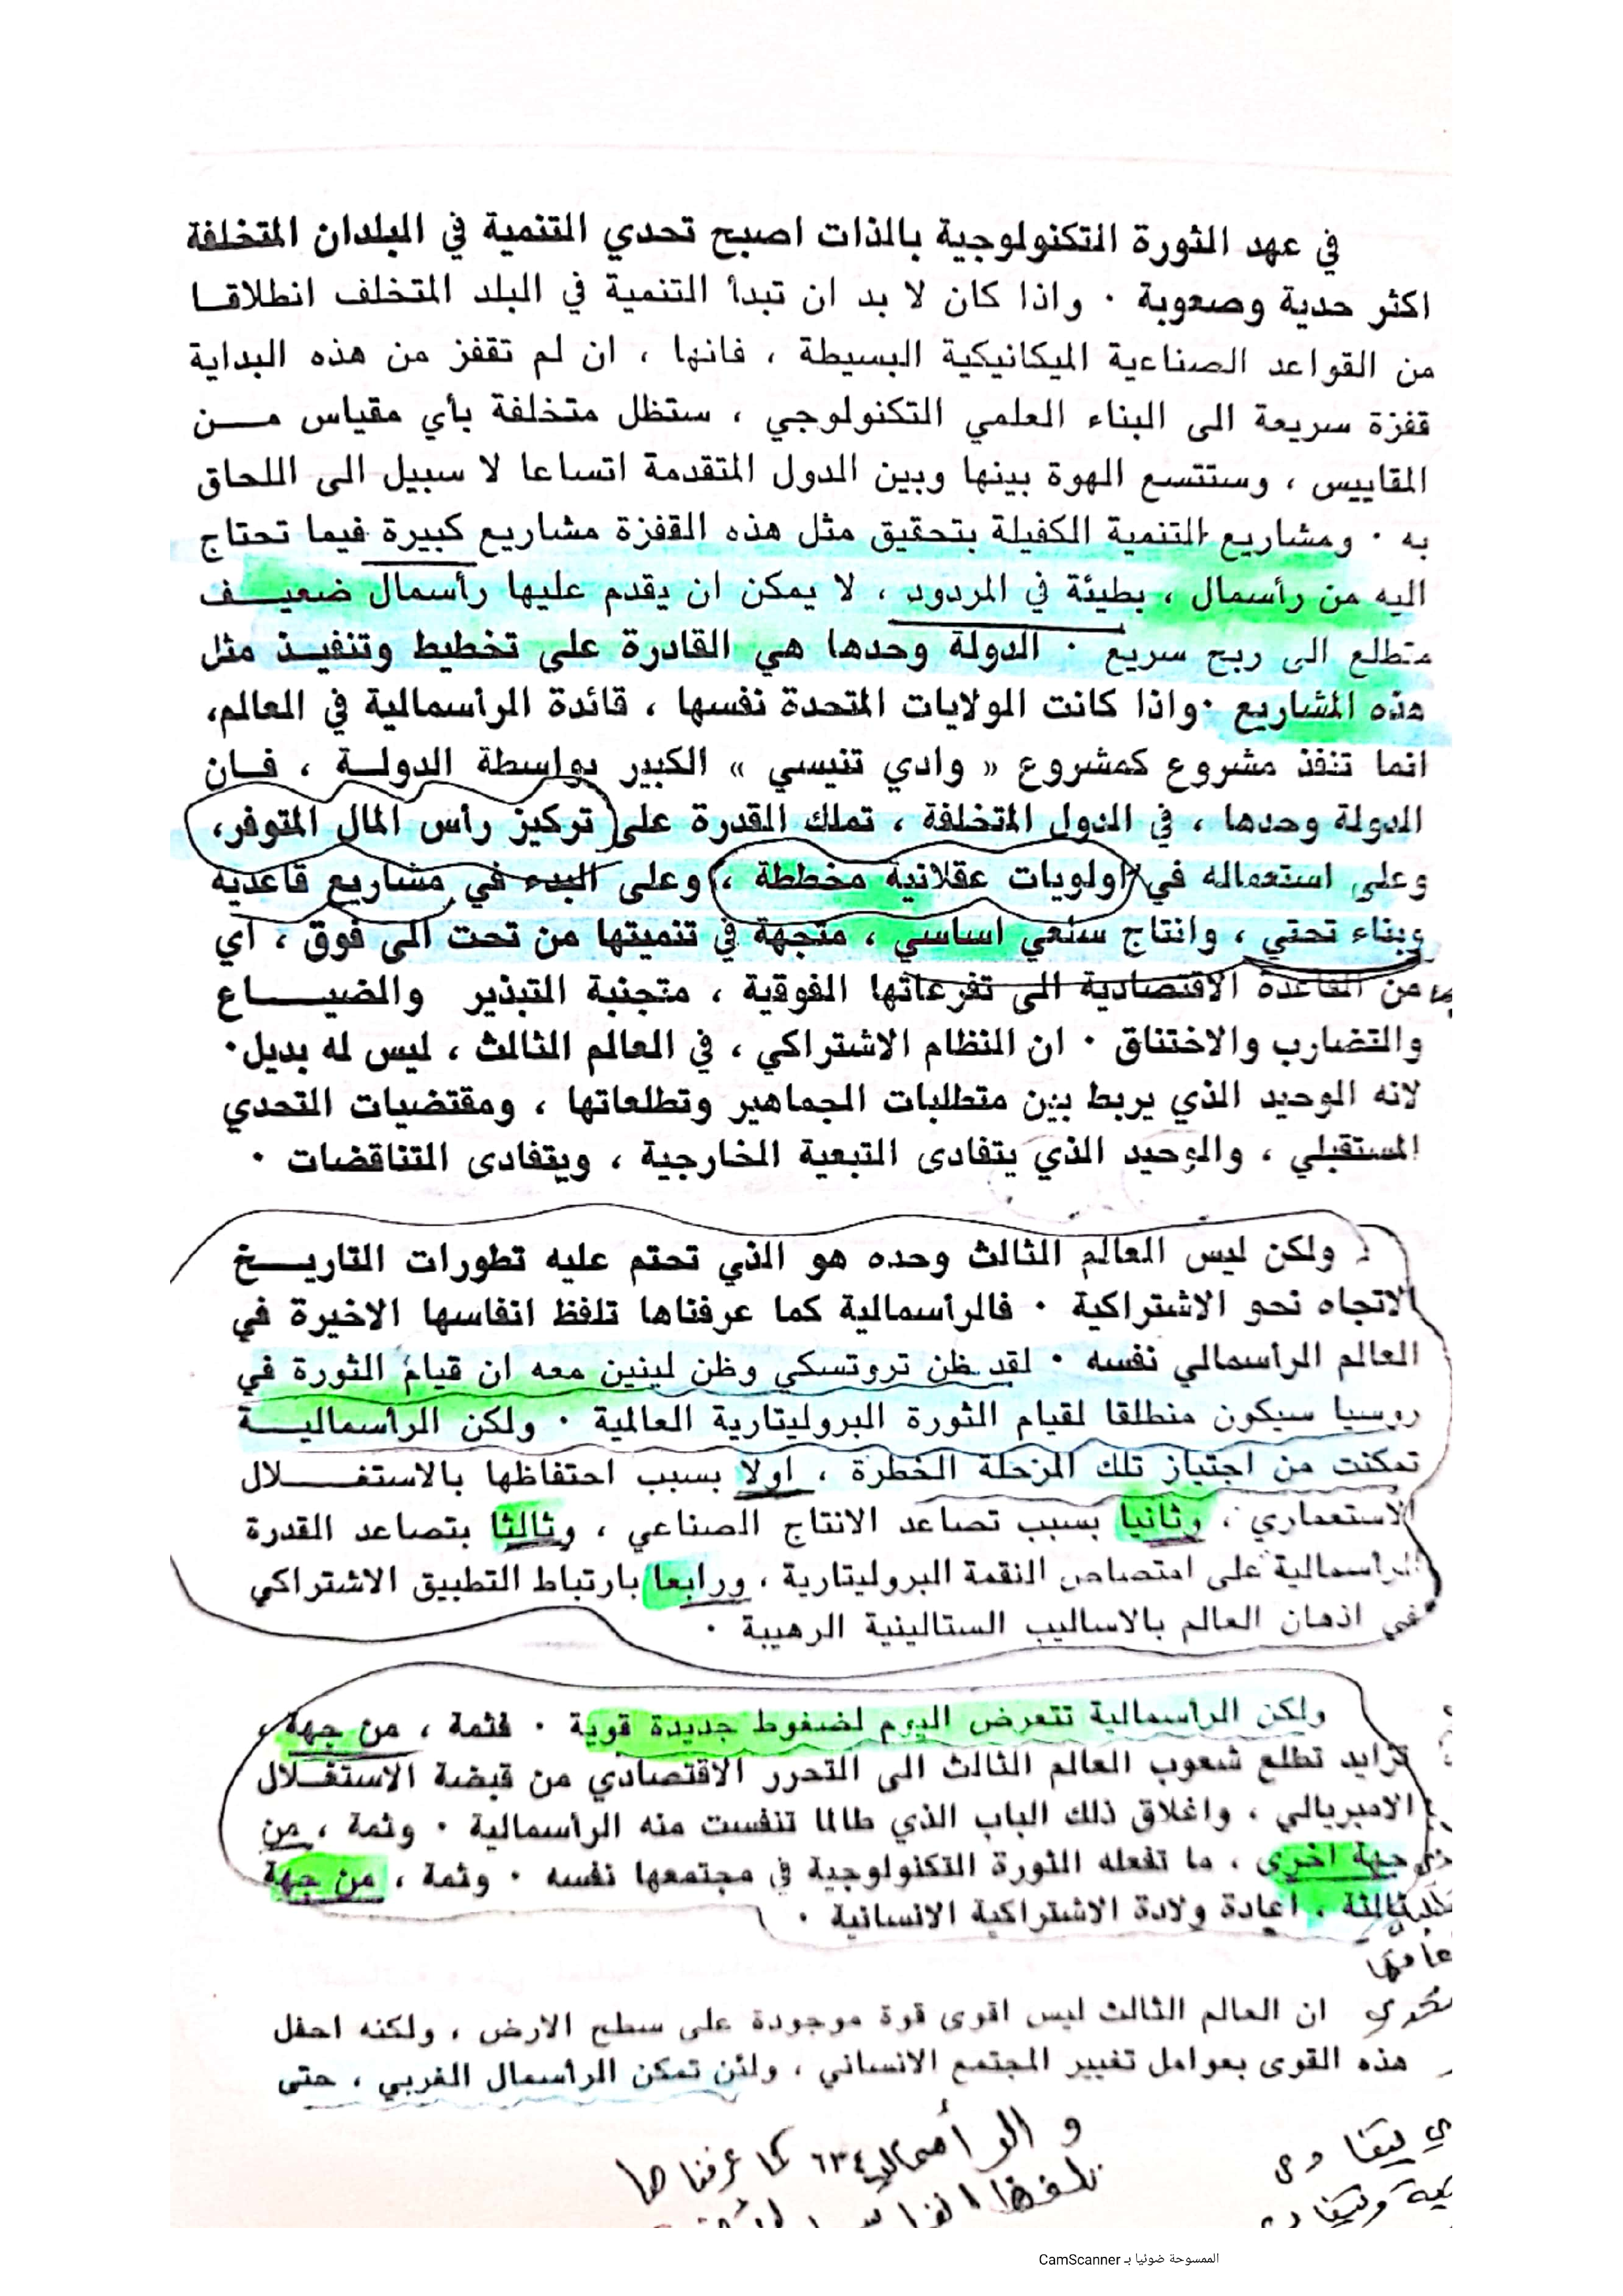 في عهد الثورة التكنولوجية بالذات اصبح تحدي التنمية في البلدان المتخلفة
اكثر حدية وصعوبة · واذا كان لا بد ان تبدأ التنمية في البلد المتخلف انطلاقا
من القواعد الصناعية الميكانيكية البسيطة ، فانها ، ان لم تقفز من هذه البداية
قفزة سريعة الى البناء العلمي التكنولوجي ، ستظل متخلفة بأي مقياس من
المقاييس ، وستتسع الهوة بينها وبين الدول المتقدمة اتساعا لا سبيل الى اللحاق
به · ومشاريع التنمية الكفيلة بتحقيق مثل هذه القفزة مشاريع كبيرة فيما تحتاج
اليه من رأسمال ، بطيئة في المردود ، لا يمكن ان يقدم عليها رأسمال ضعيف
متطلع الى ربح سريع · الدولة وحدها هي القادرة على تخطيط وتنفيذ مثل
هذه المشاريع · واذا كانت الولايات المتحدة نفسها ، قائدة الرأسمالية في العالم،
انما تنفذ مشروع كمشروع « وادي تنيسي » الكبير بواسطة الدولة ، فان
الدولة وحدها ، في الدول المتخلفة ، تملك القدرة على تركيز رأس المال المتوفر،
وعلى استعماله في اولويات عقلانية مخططة ، وعلى البدء في مشاريع قاعدية
وبناء تحتي ، وانتاج سلعي اساسي ، متجهة في تنميتها من تحت الى فوق ، أي
من القاعدة الاقتصادية الى تفرعاتها الفوقية ، متجنبة التبذير والضياع
والتضارب والاختناق · ان النظام الاشتراكي ، في العالم الثالث ، ليس له بديل·
لانه الوحيد الذي يربط بين متطلبات الجماهير وتطلعاتها ، ومقتضيات التحدي
المستقبلي ، والوحيد الذي يتفادى التبعية الخارجية ، ويتفادى التناقضات ·
ولكن ليس العالم الثالث وحده هو الذي تحتم عليه تطورات التاريخ
الاتجاه نحو الاشتراكية · فالرأسمالية كما عرفناها تلفظ انفاسها الاخيرة في
العالم الرأسمالي نفسه · لقد ظن تروتسكي وظن لينين معه ان قيام الثورة في
روسيا سيكون منطلقا لقيام الثورة البروليتارية العالمية · ولكن الرأسمالية
تمكنت من اجتياز تلك المرحلة الخطرة ، اولا بسبب احتفاظها بالاستغلال
الاستعماري ، وثانيا بسبب تصاعد الانتاج الصناعي ، وثالثا بتصاعد القدرة
الرأسمالية على امتصاص النقمة البروليتارية ، ورابعا بارتباط التطبيق الاشتراكي
في اذهان العالم بالاساليب الستالينية الرهيبة ·
ولكن الرأسمالية تتعرض اليوم لضغوط جديدة قوية · فثمة ، من جهة ،
تزايد تطلع شعوب العالم الثالث الى التحرر الاقتصادي من قبضة الاستغلال
الامبريالي ، واغلاق ذلك الباب الذي طالما تنفست منه الرأسمالية · وثمة ، من
جهة اخرى ، ما تفعله الثورة التكنولوجية في مجتمعها نفسه · وثمة ، من جهة
ثالثة ، اعادة ولادة الاشتراكية الانسانية ·
ان العالم الثالث ليس اقوى قوة موجودة على سطح الارض ، ولكنه احفل
هذه القوى بعوامل تغيير المجتمع الانساني ، ولئن تمكن الرأسمال الغربي ، حتى
و الرأسمالية ٦٣٤ كما عرفناها
تلفظ
الممسوحة ضوئيا بـ CamScanner